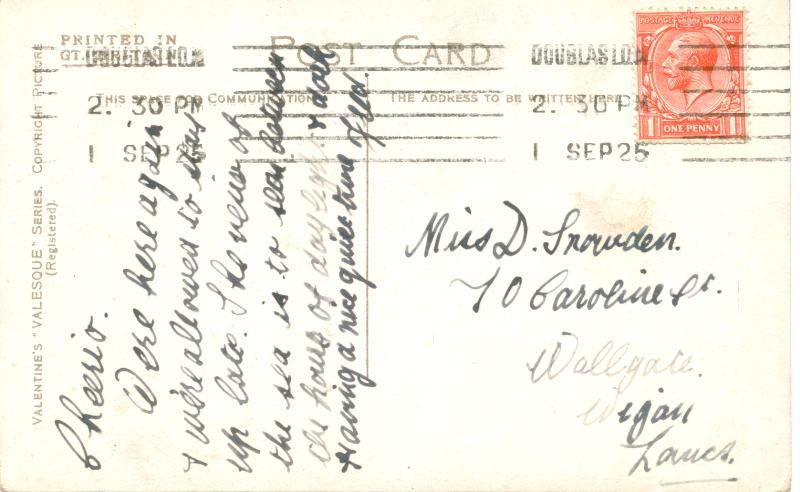 PRINTED IN
GT.
POST CARD
THIS SPACE FOR COMMUNICATION
THE ADDRESS TO BE WRITTEN HERE
VALENTINE'S "VALESQUE" SERIES. COPYRIGHT PICTURE
(Registered).
DOUGLAS I.O.M
2. 30 PM
1 SEP 25
DOUGLAS I.O.M
2. 30 PM
1 SEP 25
POSTAGE REVENUE
1 ONE PENNY 1
Cheerio.
Were here again
& were allowed to stay
up late. The view of
the sea is to sea between
the hours of daylight & dark
Having a nice quiet time
Fred.
Miss D. Snowden.
70 Caroline St.
Wallgate.
Wigan
Lancs.